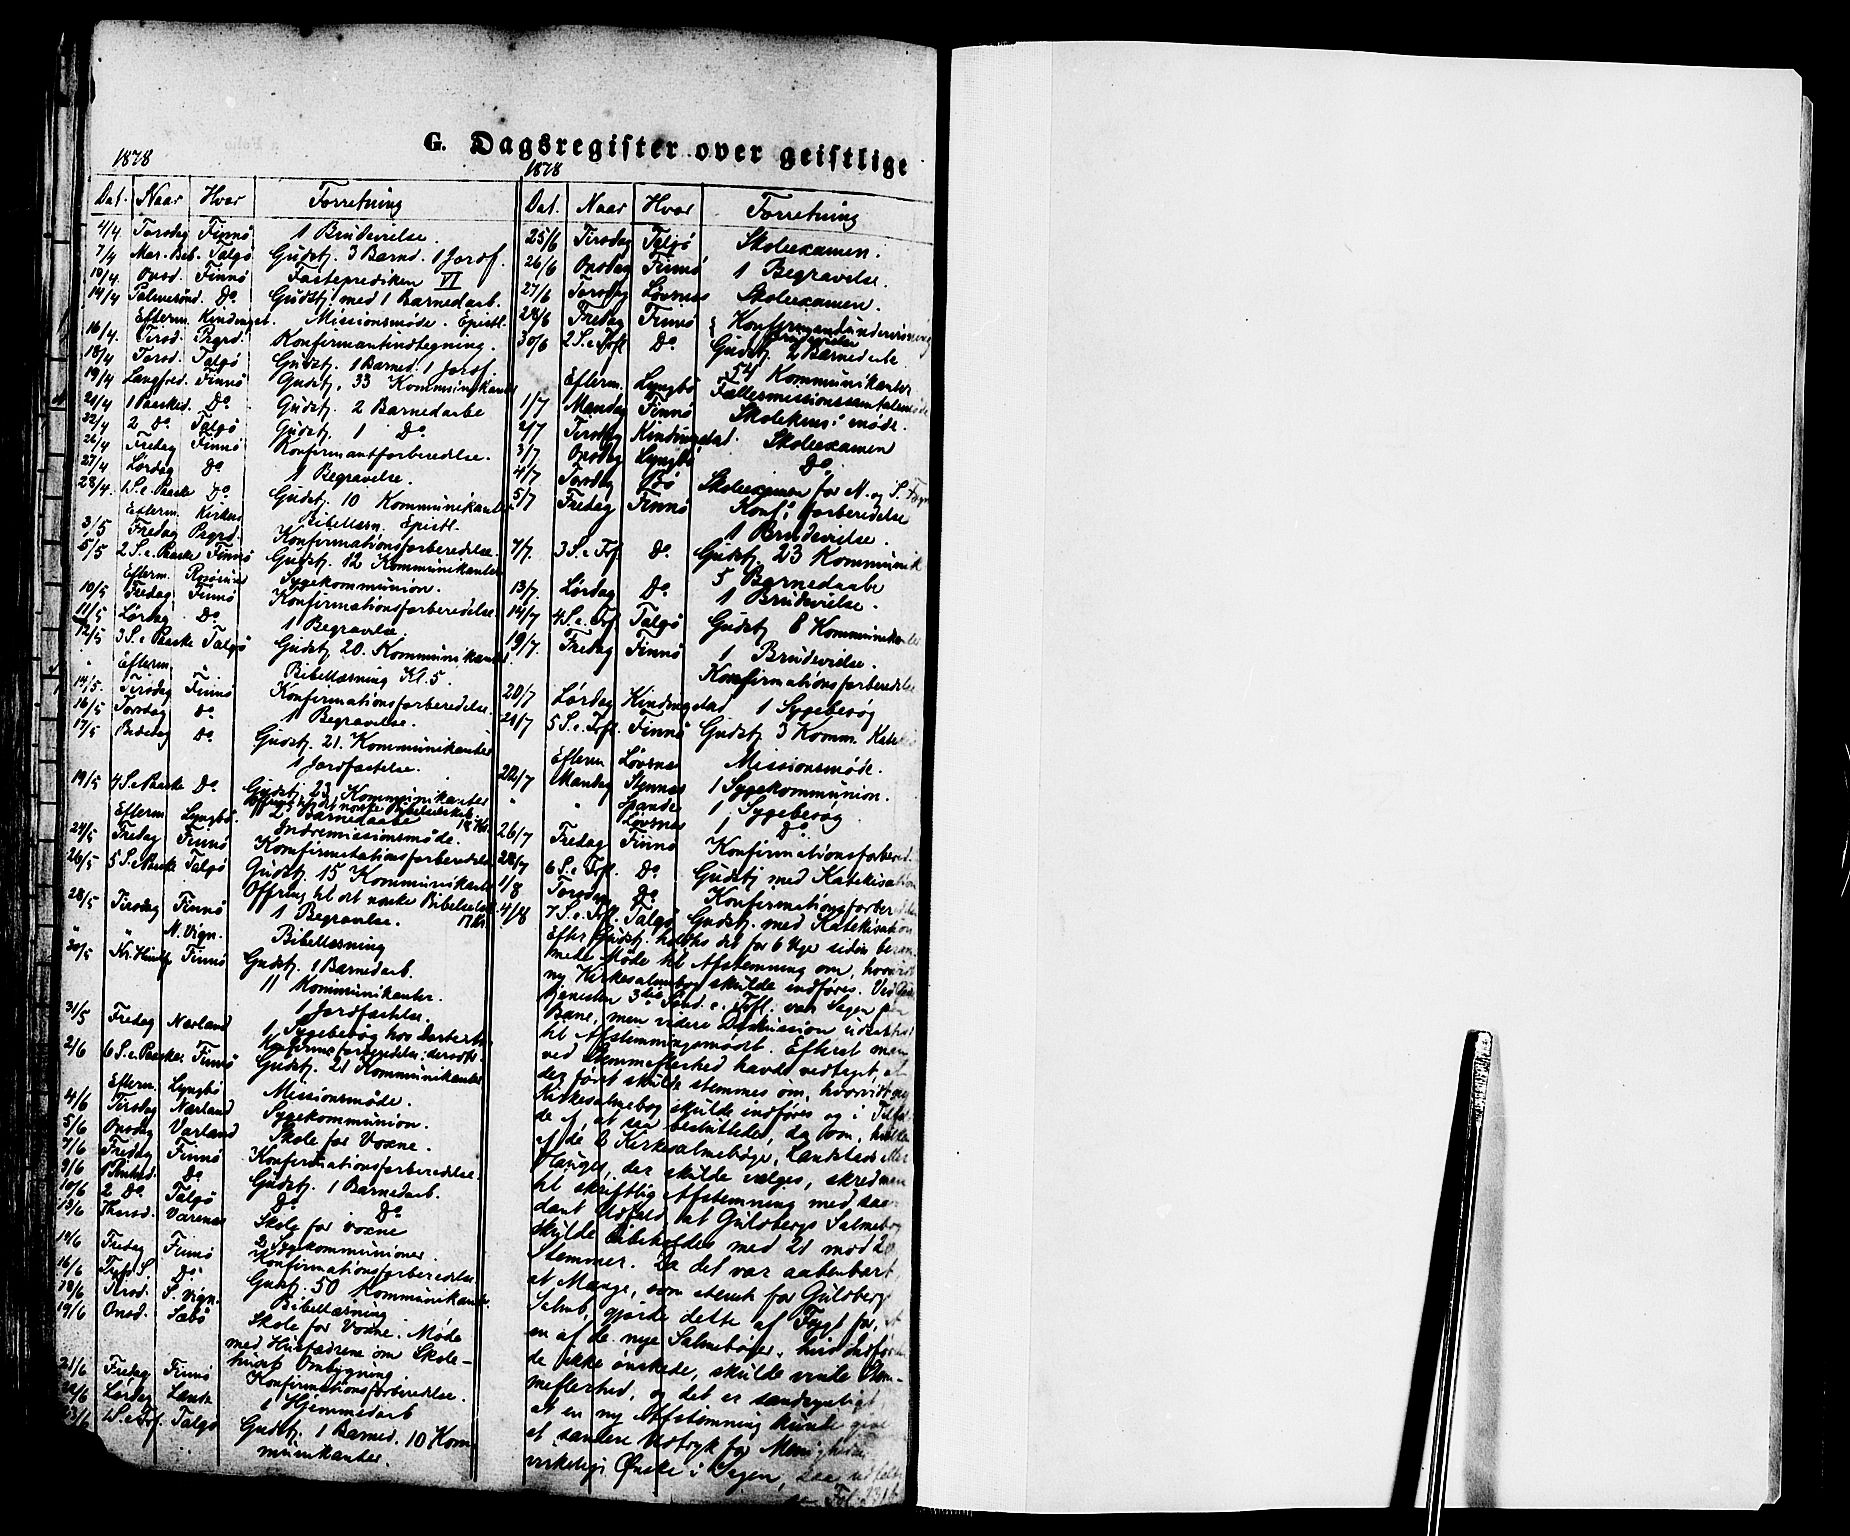 G. Dagsregister over geistlige
1878
Dat. Naar Hvor Forretning
4/4 Torsdag Finnø 1 Brudevielse.
7/4 Mar. Beb. Talgø Gudstj. 3 Barned. 1 Jordf.
10/4 Onsd. Finnø Fasteprediken VI
14/4 Palmesønd. Do Gudstj. med 1 Barnedaab.
Efterm. Kindingst. Missionsmøde. Epistl.
16/4 Tirsd. Prgrd. Konfirmantindtegning.
18/4 Torsd. Talgø Gudstj. 1 Barned. 1 Jordf.
19/4 Langfred. Finnø Gudstj. 33 Kommunikanter
21/4 1 Paasked. Do Gudstj. 2 Barnedaabe
22/4 2 Do Talgø Gudstj. 1 Do
26/4 Fredag Finnø Konfirmantforberedelse.
27/4 Lørdag Do 1 Begravelse.
28/4 1 S. e. Paaske Do Gudstj. 10 Kommunikanter
Efterm. Bibellæsn. Epistl.
3/5 Fredag Prgrd. Konfirmationsforberedelse.
5/5 2 S. e. Paaske Finnø Gudstj. 12 Kommunikanter
Efterm. Sygekommunion.
10/5 Fredag Finnø Konfirmationsforberedelse
11/5 Lørdag Do 1 Begravelse.
12/5 3 S. e. Paaske Talgø Gudstj. 20 Kommunikanter
" Efterm. " Bibellæsning Kl. 5.
14/5 Tirsdag Finnø Konfirmationsforberedelse.
16/5 Torsdag Do 1 Begravelse.
17/5 Bededag Do Gudstj. 21 Kommunikanter
1 Jordfæstelse.
19/5 4 S. e. Paaske Do Gudstj. 23 Kommunikanter
2 Barnedaabe
Efterm Lyngbø Indremissionsmøde.
24/5 Fredag Finnø Konfirmationsforberedelse
26/5 5 S. e. Paaske Talgø Gudstj. 15 Kommunikanter
Offring til det norske Bibelselsk.
28/5 Tirsdag Finnø 1 Begravelse. 17 Kr.
" " N. Vign. Bibellæsning
30/5 Kr. Himlf. Finnø Gudstj. 1 Barnedaab.
11 Kommunikanter.
1 Jordfæstelse.
31/5 Fredag Nærland 1 Sygebesøg hos
2/6 6 S. e. Paaske Finnø Gudstj. 21 Kommunikanter
Efterm. Lyngbø Missionsmøde.
4/6 Tirsdag Nærland Sygekommunion.
5/6 Onsdag Varland Skole for Voxne.
7/6 Fredag Finnø Konfirmationsforberedelse.
9/6 1 Pintsed. Do Gudstj. 1 Barnedaab.
10/6 2 Do Talgø Do Do
13/6 Thorsd. Varenes Skole for voxne
2 Sygekommunioner.
14/6 Fredag Finnø Konfirmationsforberedelse
16/6 Tref. S. Do Gudstj. 50 Kommunikanter.
18/6 Tirsd. S. Vign. Bibellæsning
19/6 Onsd. Sæbø Skole for Voxne. Møde
med Husfædrene om Skole-
huset Ombygning.
21/6 Fredag Finnø Konfirmationsforberedelse.
22/6 Lørdag 1 Hjemmedaab
23/6 1 S. e. Tref. Talgø Gudstj. 1 Barned. 10 Kom-
munikanter.
1878
Dat. Naar Hvor Forretning
25/6 Tirsdag Talgø Skoleexamen.
26/6 Onsdag Finnø 1 Begravelse.
27/6 Torsdag Løvsnes Skoleexamen.
28/6 Fredag Finnø Konfirmandundervisning
1 Brudevielse
30/6 2 S. e. Trf. Do Gudstj. 2 Barnedaabe
54 Kommunikanter
Efterm. Lyngbø Fællesmissionssamtalemøde
1/7 Mandag Finnø møde.
2/7 Tirsdag Kindingstad. Skoleexamen
3/7 Onsdag Lyngbø Do
4/7 Torsdag Bø Skoleexamen for N. og S.
5/7 Fredag Finnø Konf. forberedelse
1 Brudevielse.
7/7 3 S. e. Trf. Do Gudstj. 23 Kommunik
5 Barnedaabe
13/7 Lørdag Do 1 Brudevielse.
14/7 4 S. e. Trf. Talgø Gudstj 8 Kommunikanter
19/7 Fredag Finnø 1 Brudevielse.
Konfirmationsforberedelse
20/7 Lørdag Kindingstad 1 Sygebesøg
21/7 5 S. e. Trf. Finnø Gudstj 3 Komm.
Efterm Løvsnes Missionsmøde.
22/7 Mandag Stennes 1 Sygekommunion.
" " Spande 1 Sygebesøg
Løvsnes 1 Do
26/7 Fredag Finnø Konfirmationsforbered.
28/7 6 S. e. Trf. Do Gudstj med Katekisation
1/8 Torsdag Do Konfirmationsforberedelse
4/8 7 S. e. Trf. Talgø Gudstj. med Katekisation
Efter Gudstj. holdtes det for 6 Uger siden beram-
mede Møde til Afstemning om, hvorvidt
ny Kirkesalmebog skulde indføres. Ved
tjenesten 3die Sønd. e. Trf. var Sagen paa
Bane, men videre Diskussion udsattes
til Afstemningsmødet. Efterat man
ved Stemmeflerhed havde vedtaget, at
der først skulde stemmes om, hvorvidt ny
Kirkesalmebog skulde indføres og i Tilfæl-
de af, at saa besluttedes, da om, hvilken
af de 2 Kirkesalmebøger, Landstads eller
Hauges, der skulde vælges, skred man
til skriftlig Afstemning med saa-
dant Udfald at Guldbergs Salmebog
skulde bibeholdes med 21 mod 20
Stemmer. Da det var aabenbart,
at Mange, som stemte for Guldbergs
Salmb., gjorde dette af Frygt for, at
en af de nye Salmebøger, hvis Indførelse
de ikke ønskede, skulde vinde Stem-
meflerhed, og det er sandsynligt,
at en ny Afstemning kunde give
et sandere Udtryk for Menighedens
virkelige Ønske i Sagen,